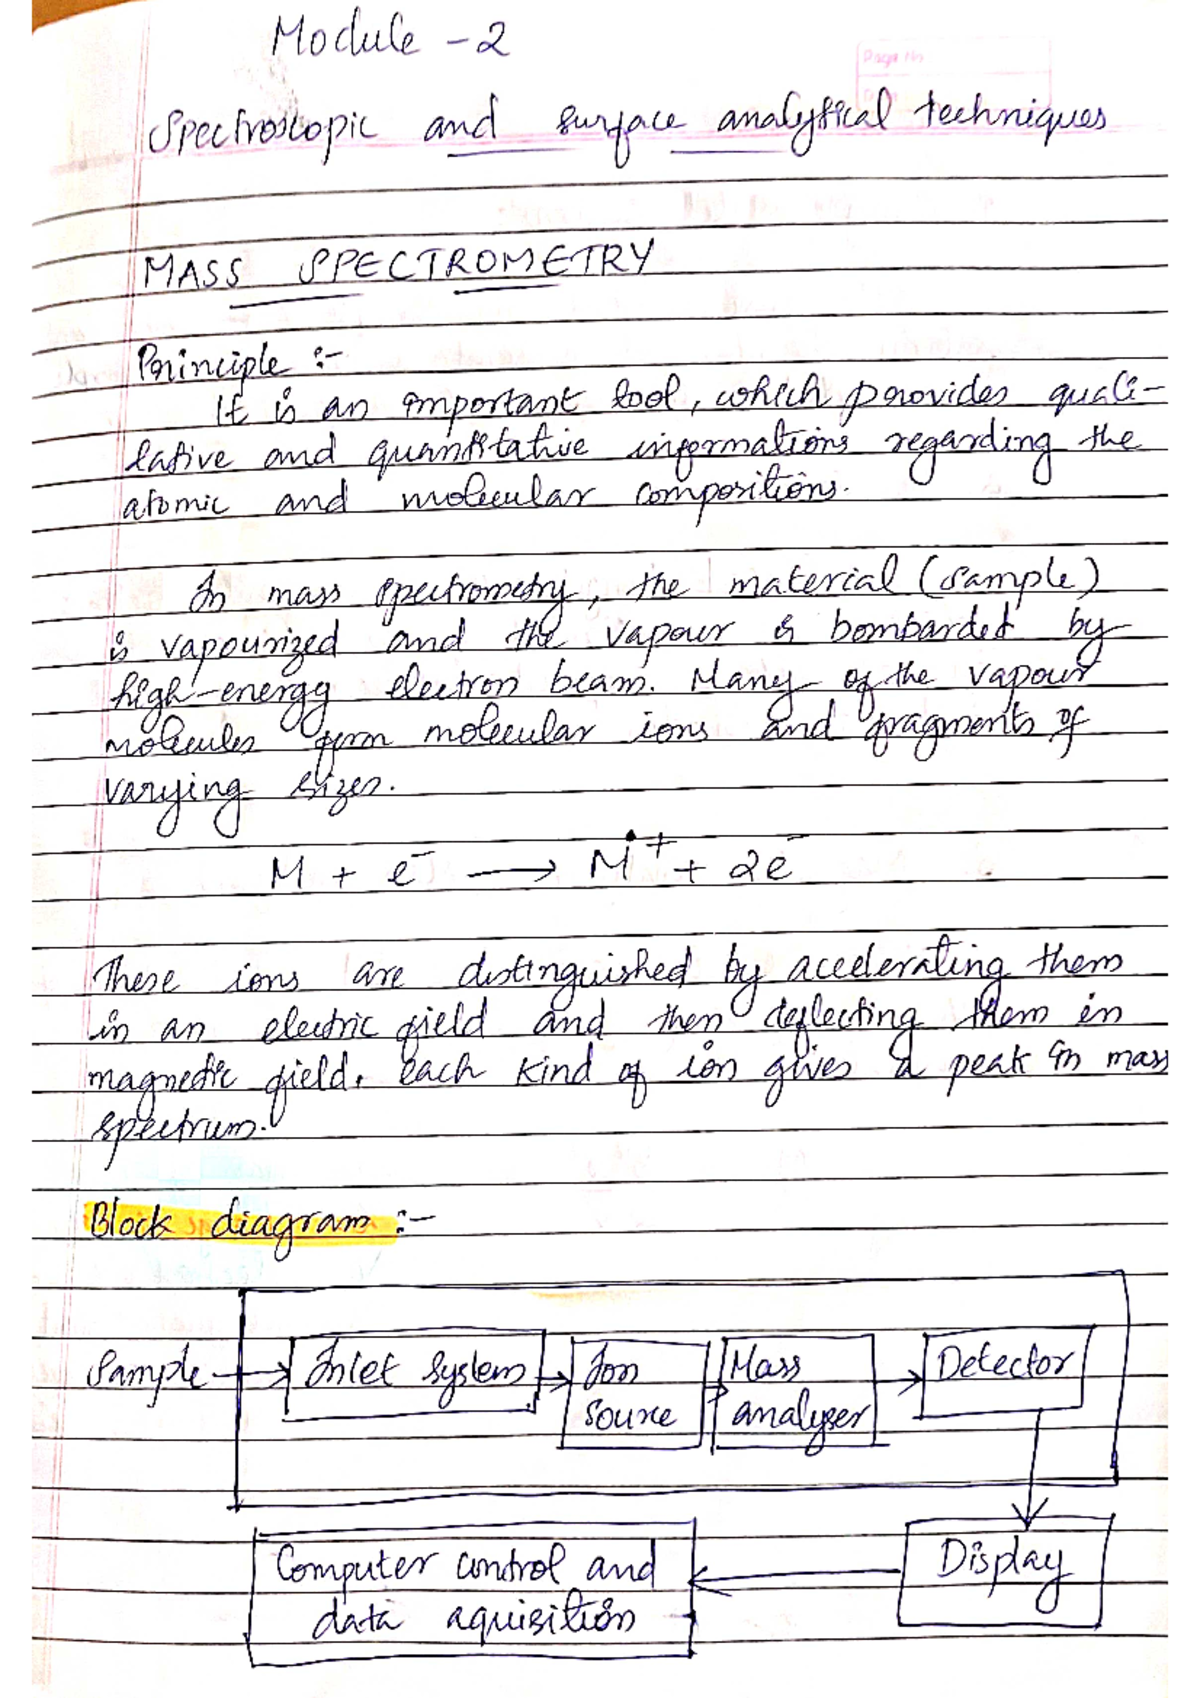 Page No
Module - 2
Spectroscopic and surface analytical techniques
MASS SPECTROMETRY
Principle :-
It is an important tool, which provides quali-
tative and quantitative informations regarding the
atomic and molecular compositions.
In mass spectrometry, the material (sample)
is vapourized and the vapour is bombarded by
high-energy electron beam. Many of the vapour
molecules form molecular ions and fragments of
varying sizes.
M + e⁻ ⟶ M•⁺ + 2e⁻
These ions are distinguished by accelerating them
in an electric field and then deflecting them in
magnetic field. Each kind of ion gives a peak in mass
spectrum.
Block diagram :-
Sample → Inlet System → Ion source → Mass analyser → Detector
Display
Computer control and
data aquisition